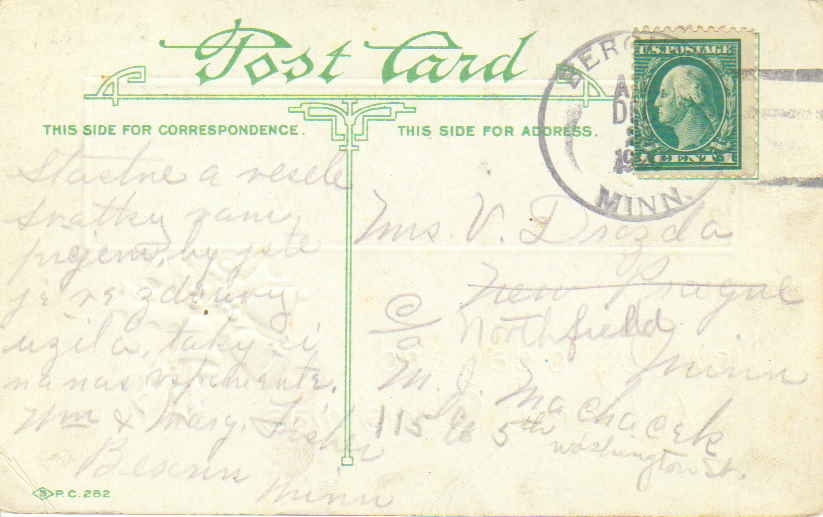 Post Card
THIS SIDE FOR CORRESPONDENCE.
THIS SIDE FOR ADDRESS.
U.S. POSTAGE
MINN.
Stastne a vesele
svatky vam
prejem, by jste
je ve zdravy
uzila, taky si
na nas vspomente.
Wm & Mary Fisher
Minn
Mrs. V. Drozda
New Prague
c/o Northfield
Minn
M. J. Machacek
115 5th
Washington St.
P.C. 252